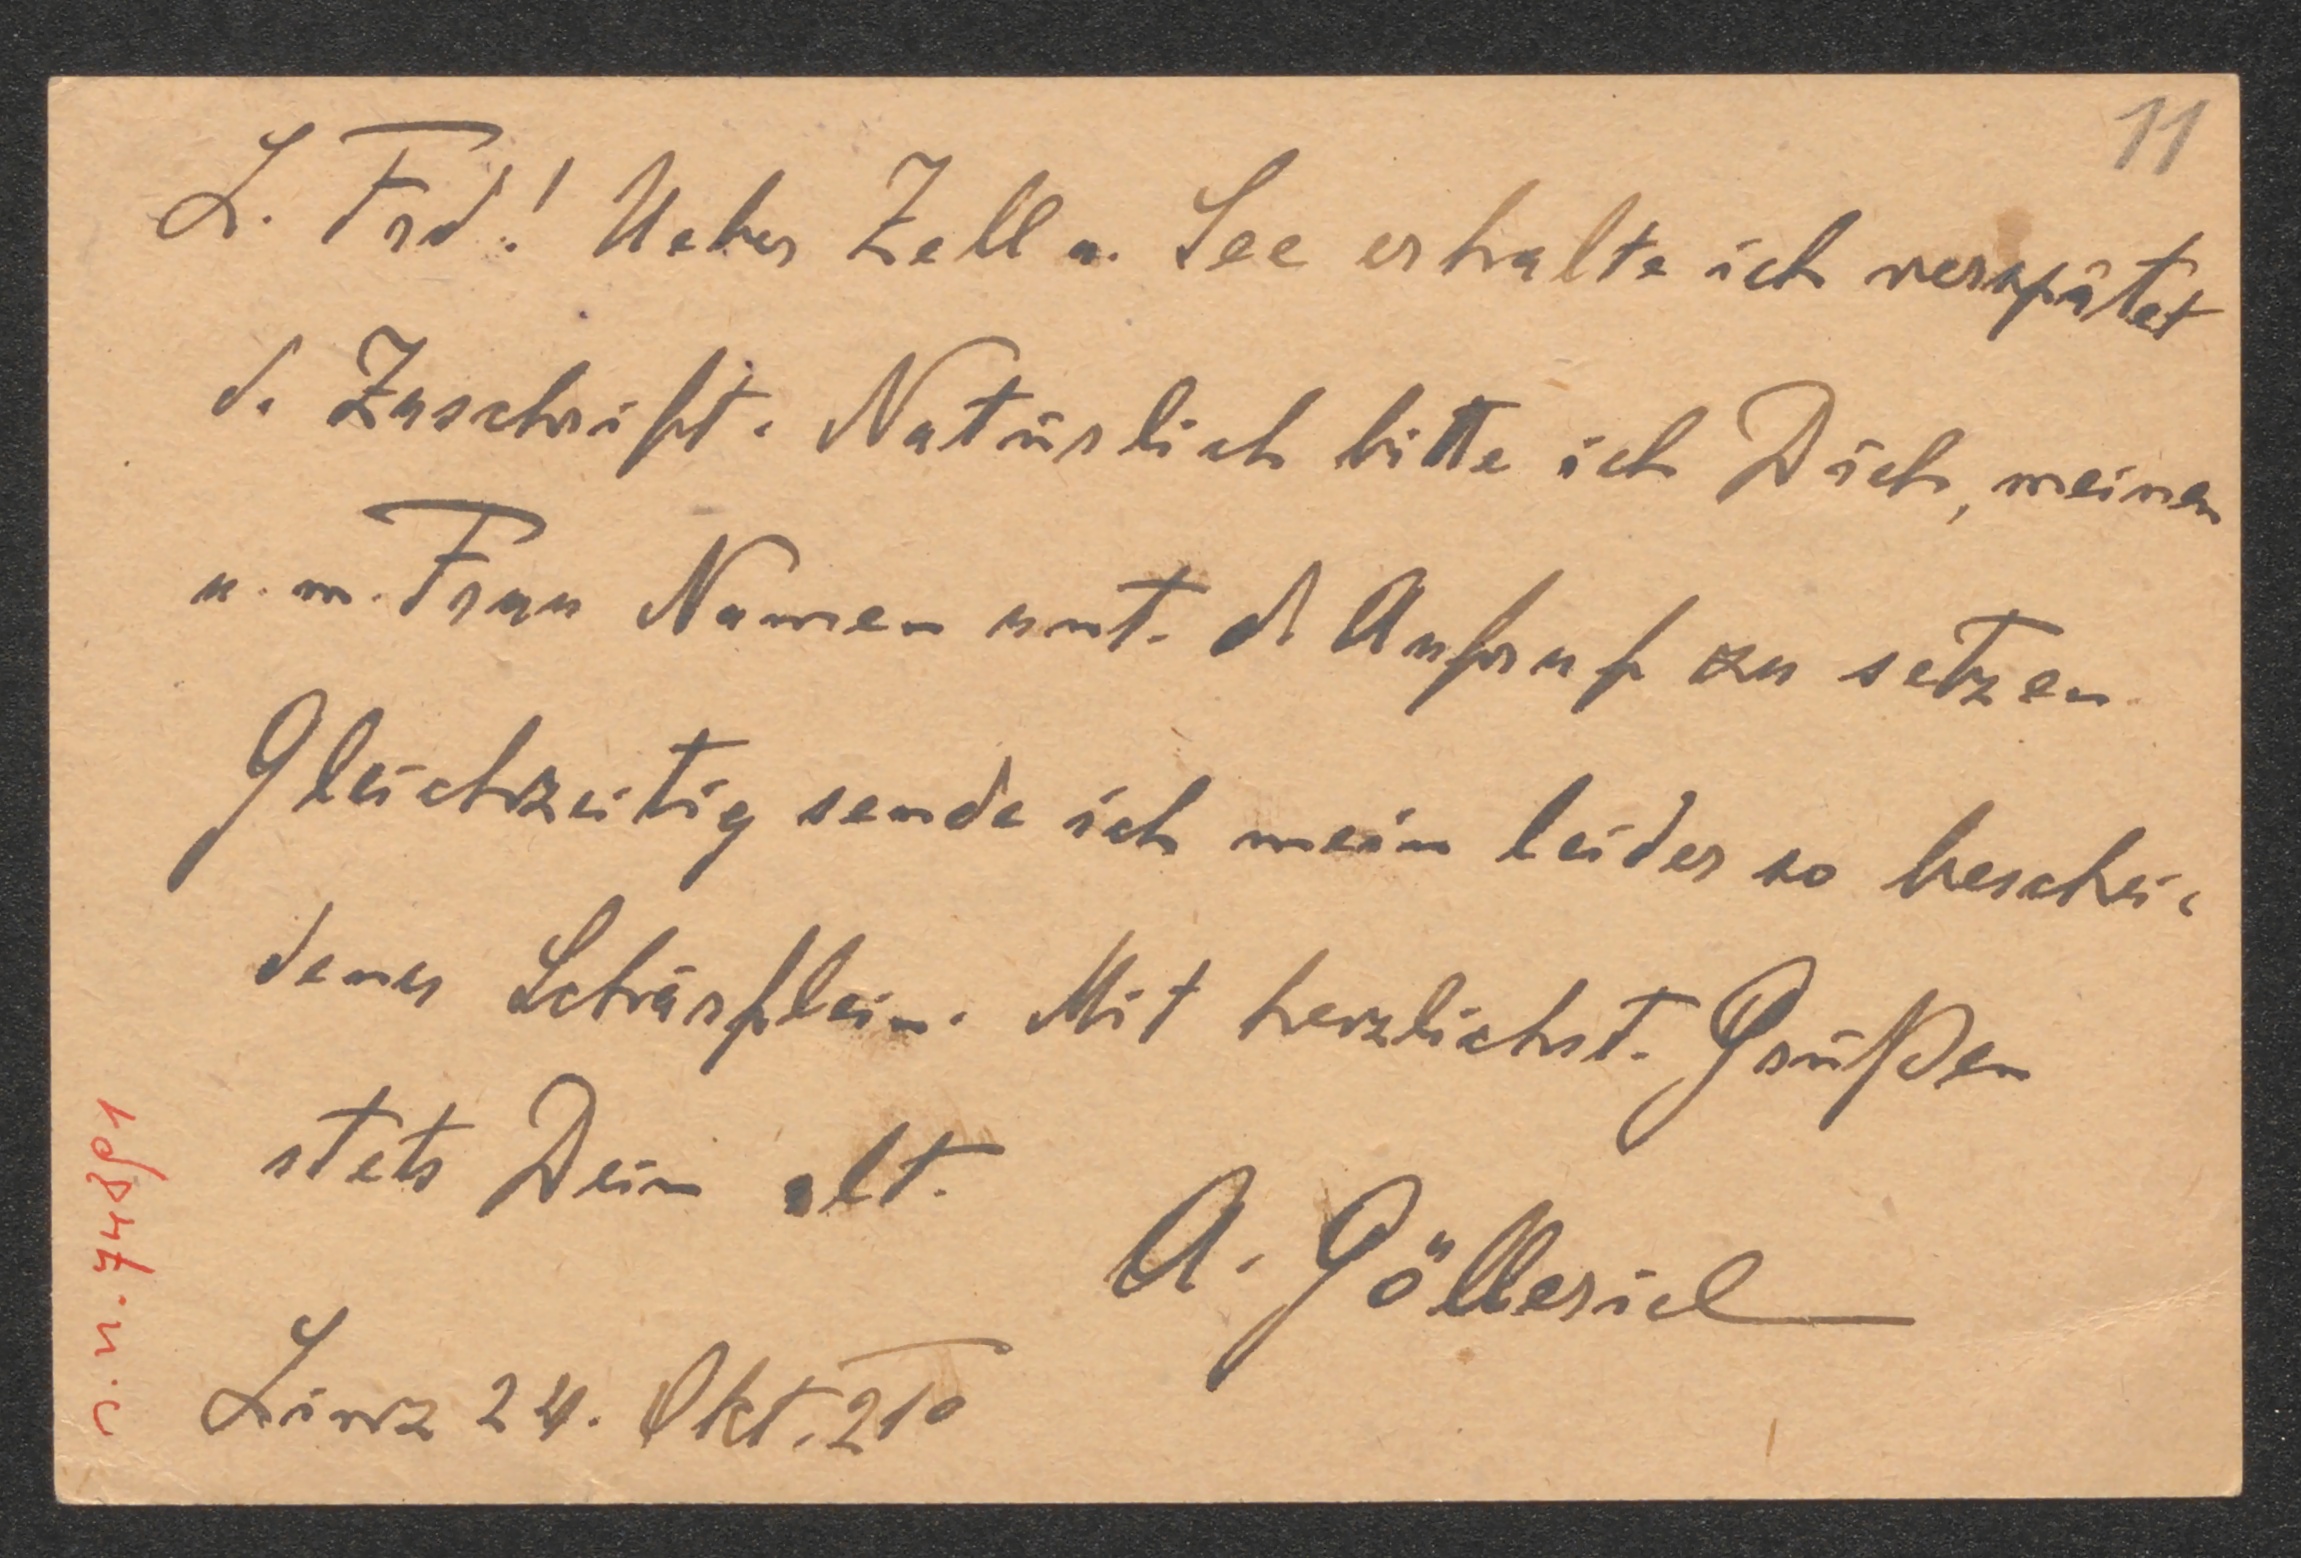 11
L. Frd! Ueber Zell a. See erhalte ich verspätet
d. Zuschrift. Natürlich bitte ich Dich, meinen
u. m. Frau Namen unt. d Aufruf zu setzen
Gleichzeitig sende ich mein leider so beschei-
denes Schärflein. Mit herzlichst. Grüßen
stets Dein alt.
A. Göllerich
Linz 24. Okt.